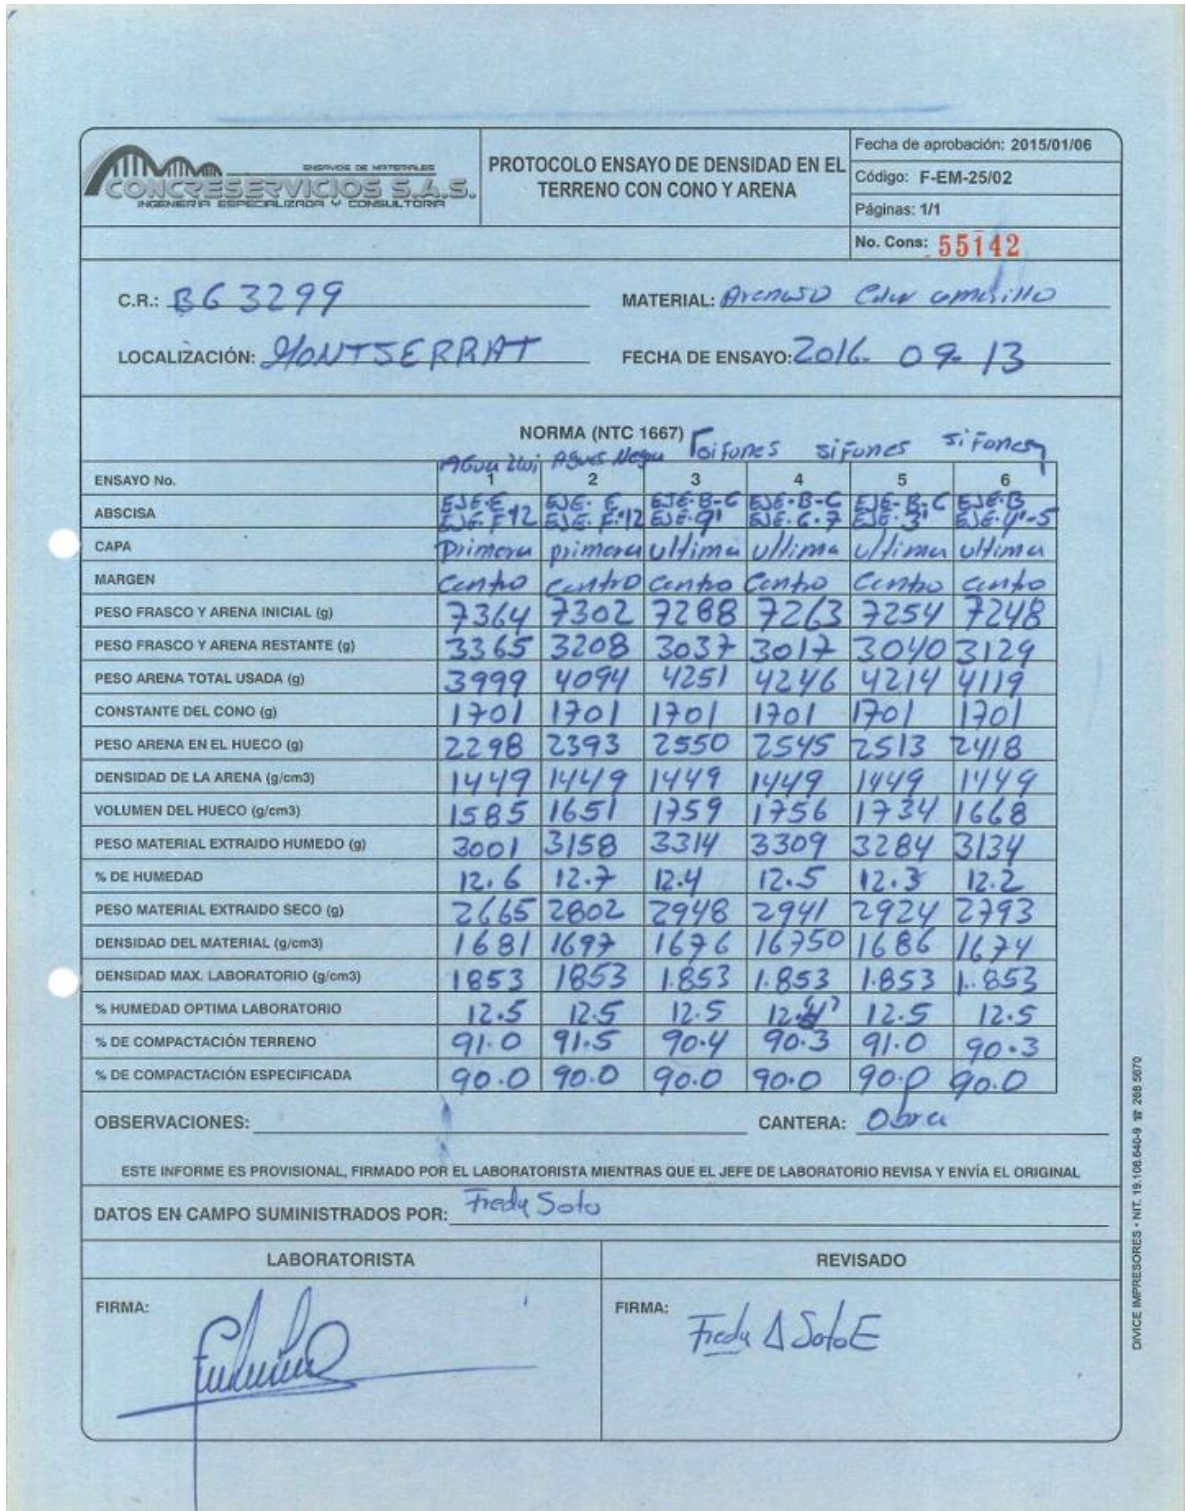 ENSAYOS DE MATERIALES
CONCRESERVICIOS S.A.S.
INGENIERÍA ESPECIALIZADA Y CONSULTORIA
PROTOCOLO ENSAYO DE DENSIDAD EN EL
TERRENO CON CONO Y ARENA
Fecha de aprobación: 2015/01/06
Código: F-EM-25/02
Páginas: 1/1
No. Cons: 55142
C.R.: BG 3299 MATERIAL: Arenoso Color amarillo
LOCALIZACIÓN: MONTSERRAT FECHA DE ENSAYO: 2016-09-13
NORMA (NTC 1667)
Agua Lluvi Aguas Negra Sifones Sifones Sifones
ENSAYO No. 1 2 3 4 5 6
ABSCISA EJE-E EJE-F-12 EJE-E EJE-F-12 EJE-B-C EJE-9' EJE-B-C EJE-6-7 EJE-B-C EJE-3' EJE-B EJE-4'-5
CAPA Primera primera ultima ultima ultima ultima
MARGEN Centro Centro Centro Centro Centro Centro
PESO FRASCO Y ARENA INICIAL (g) 7364 7302 7288 7263 7254 7248
PESO FRASCO Y ARENA RESTANTE (g) 3365 3208 3037 3017 3040 3129
PESO ARENA TOTAL USADA (g) 3999 4094 4251 4246 4214 4119
CONSTANTE DEL CONO (g) 1701 1701 1701 1701 1701 1701
PESO ARENA EN EL HUECO (g) 2298 2393 2550 2545 2513 2418
DENSIDAD DE LA ARENA (g/cm3) 1449 1449 1449 1449 1449 1449
VOLUMEN DEL HUECO (g/cm3) 1585 1651 1759 1756 1734 1668
PESO MATERIAL EXTRAIDO HUMEDO (g) 3001 3158 3314 3309 3284 3134
% DE HUMEDAD 12.6 12.7 12.4 12.5 12.3 12.2
PESO MATERIAL EXTRAIDO SECO (g) 2665 2802 2948 2941 2924 2793
DENSIDAD DEL MATERIAL (g/cm3) 1681 1697 1676 16750 1686 1674
DENSIDAD MAX. LABORATORIO (g/cm3) 1853 1853 1.853 1.853 1.853 1.853
% HUMEDAD OPTIMA LABORATORIO 12.5 12.5 12.5 12.5 12.5
% DE COMPACTACIÓN TERRENO 91.0 91.5 90.4 90.3 91.0 90.3
% DE COMPACTACIÓN ESPECIFICADA 90.0 90.0 90.0 90.0 90.0 90.0
OBSERVACIONES: CANTERA: Obra
ESTE INFORME ES PROVISIONAL, FIRMADO POR EL LABORATORISTA MIENTRAS QUE EL JEFE DE LABORATORIO REVISA Y ENVÍA EL ORIGINAL
DATOS EN CAMPO SUMINISTRADOS POR: Fredy Soto
LABORATORISTA REVISADO
FIRMA: FIRMA: Fredy A Soto E
DIVICE IMPRESORES • NIT. 19.106.640-9 ☎ 268 5670